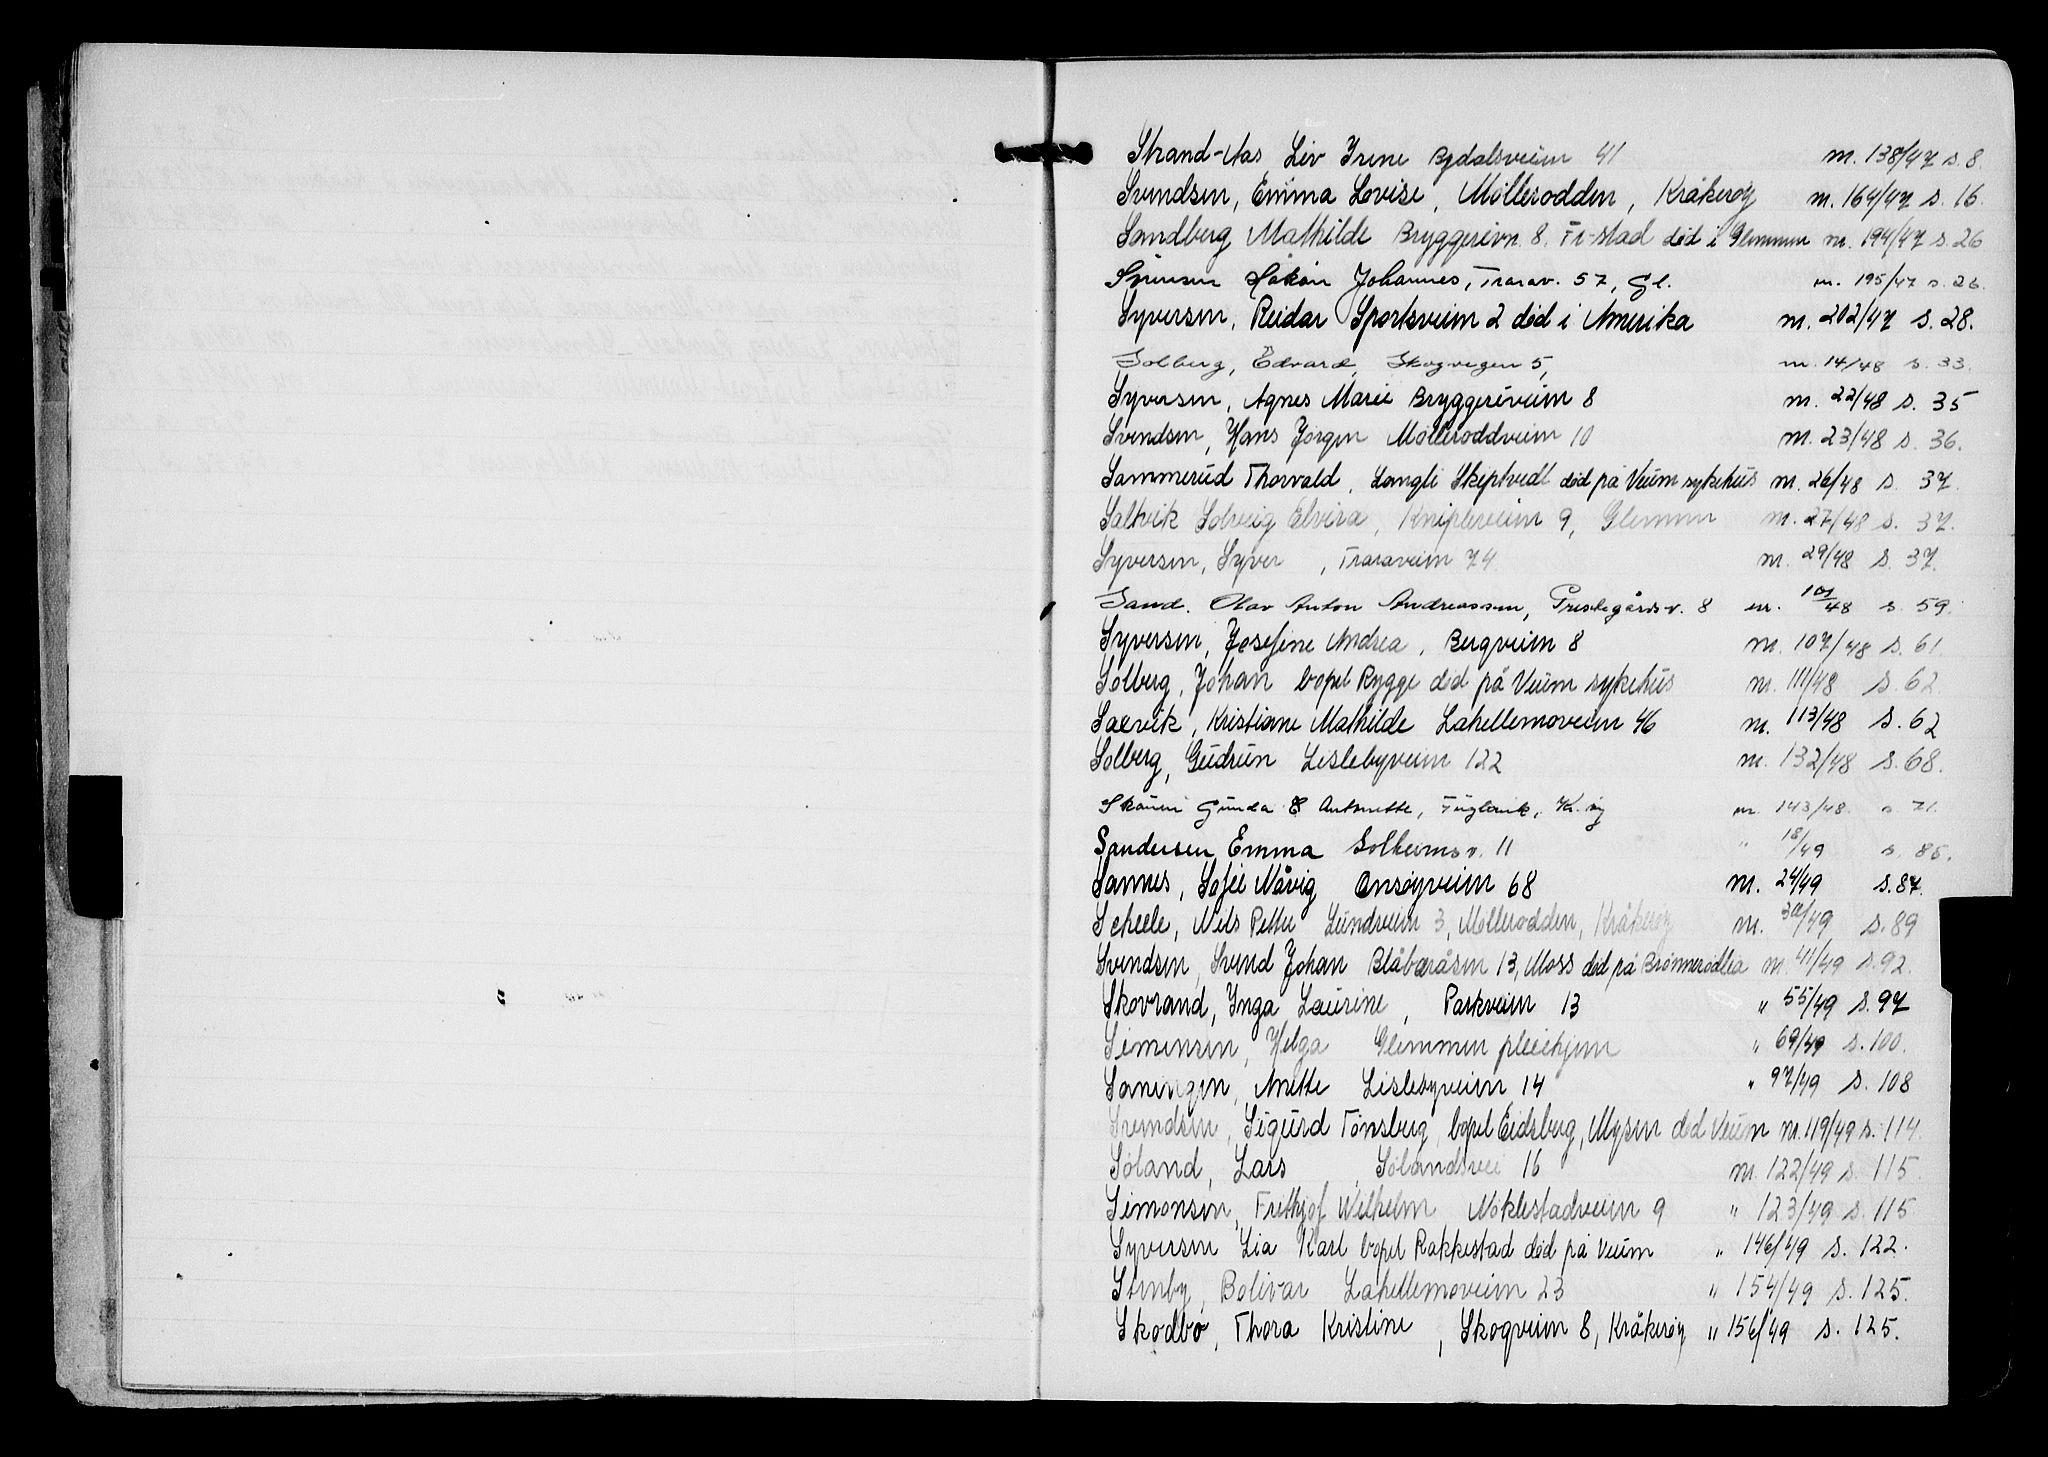 Strand-Aas Liv Irene Bydalsveien 41 nr. 138/47 s. 8.
Svendsen, Emma Lovise, Møllerodden, Kråkerøy nr. 164/47 s. 16.
Sandberg Mathilde Bryggerivn. 8. Fr-stad død i Glemmen nr. 194/47 s. 26
Sørensen Håkon Johannes, Trarav. 57, Gl. nr. 195/47 s. 26.
Syversen, Reidar Sportsveien 2 død i Amerika nr. 202/47 s. 28.
Solberg, Edvard, Skogvegen 5, nr. 14/48 s. 33.
Syversen, Agnes Marie Bryggeriveien 8 nr. 22/48 s. 35
Svendsen, Hans Jørgen Mølleroddveien 10 nr. 23/48 s. 36.
Sammerud Thorvald, Langli Skiptvedt død på Veum sykehus nr. 26/48 s. 37.
Saltvik Solveig Elvira, Knipleveien 9, Glemmen nr. 27/48 s. 37.
Syversen, Syver, Traraveien 74 nr. 29/48 s. 37.
Sand. Olav Anton Andreassen, Prestegårdsv. 8 nr. 101/48 s. 59.
Syversen, Josefine Andrea, Bergveien 8 nr. 107/48 s. 61
Solberg, Johan bopel Rygge død på Veum sykehus nr. 111/48 s. 62.
Saxvik, Kristiane Mathilde Lahellemoveien 46 nr. 113/48 s. 62
Solberg, Gudrun Lislebyveien 122 nr. 132/48 s. 68.
Skauen Gunda Antonette, Fuglevik, Kr.øy nr. 143/48. s 71.
Sandersen Emma Solheimsv. 11 " 18/49 s. 85.
Sannes, Sofie Nåvig Onsøyveien 68 nr. 24/49 s. 87.
Scheele, Nils Petter Lundveien 3, Møllerodden, Kråkerøy nr. 30/49 s. 89
Svendsen, Svend Johan Blåbæråsen 13, Moss død på Brønnerødlia nr. 41/49 s. 92.
Skovrand, Inga Laurine, Parkveien 13 " 55/49 s. 97
Simensen, Helga Glemmen pleiehjem " 69/49 s. 100.
Anette Lislebyveien 14 " 97/49 s. 108
Svendsen, Sigurd Tønsberg bopel Eidsberg, Mysen død Veum nr. 119/49 s. 114.
Søland, Lars, Sølandsvei 16 nr. 122/49 s. 115.
Simonsen, Frithjof Wilhelm Nøklestadveien 9 " 123/49 s. 115
Syversen Lia Karl bopel Rakkestad død på Veum " 146/49 s. 122.
Stenby, Bolivar Lahellemoveien 23 " 154/49 s. 125.
Skodbo, Thora Kristine, Skogveien 8, Kråkerøy " 156/49 s. 125.